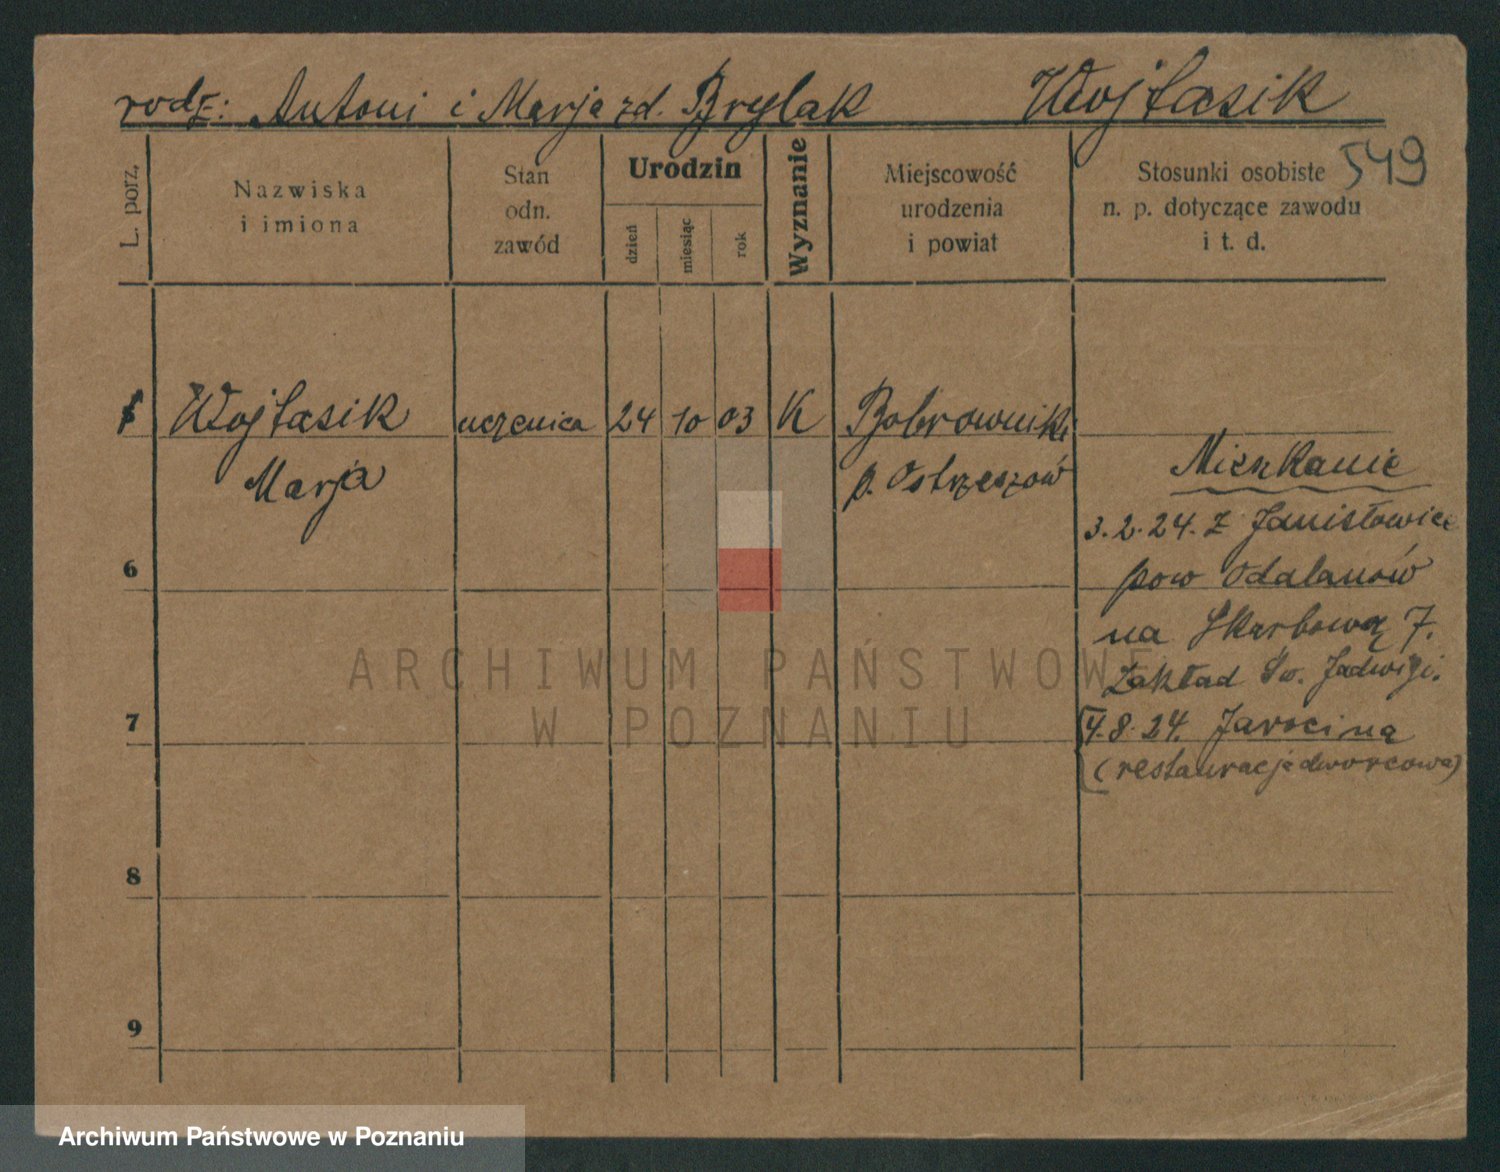 rodz: Antoni i Marja zd. Brylak Wojtasik
549
L. porz.
Nazwiska
i imiona
Stan
odn.
zawód
Urodzin
dzień
miesiąc
rok
Wyznanie
Miejscowość
urodzenia
i powiat
Stosunki osobiste
n. p. dotyczące zawodu
i t. d.
Wojtasik uczenica 24 10 03 K Bobrowniki
Marja p. Ostrzeszów
Mieszkanie
3.2.24. z Janisławice
pow Odalanów
6
na Skarbową 7.
Zakład Św. Jadwigi.
7
4.8.24. Jarocina
(restauracja dworcowa)
8
9
ARCHIWUM PAŃSTWOWE
W POZNANIU
Archiwum Państwowe w Poznaniu